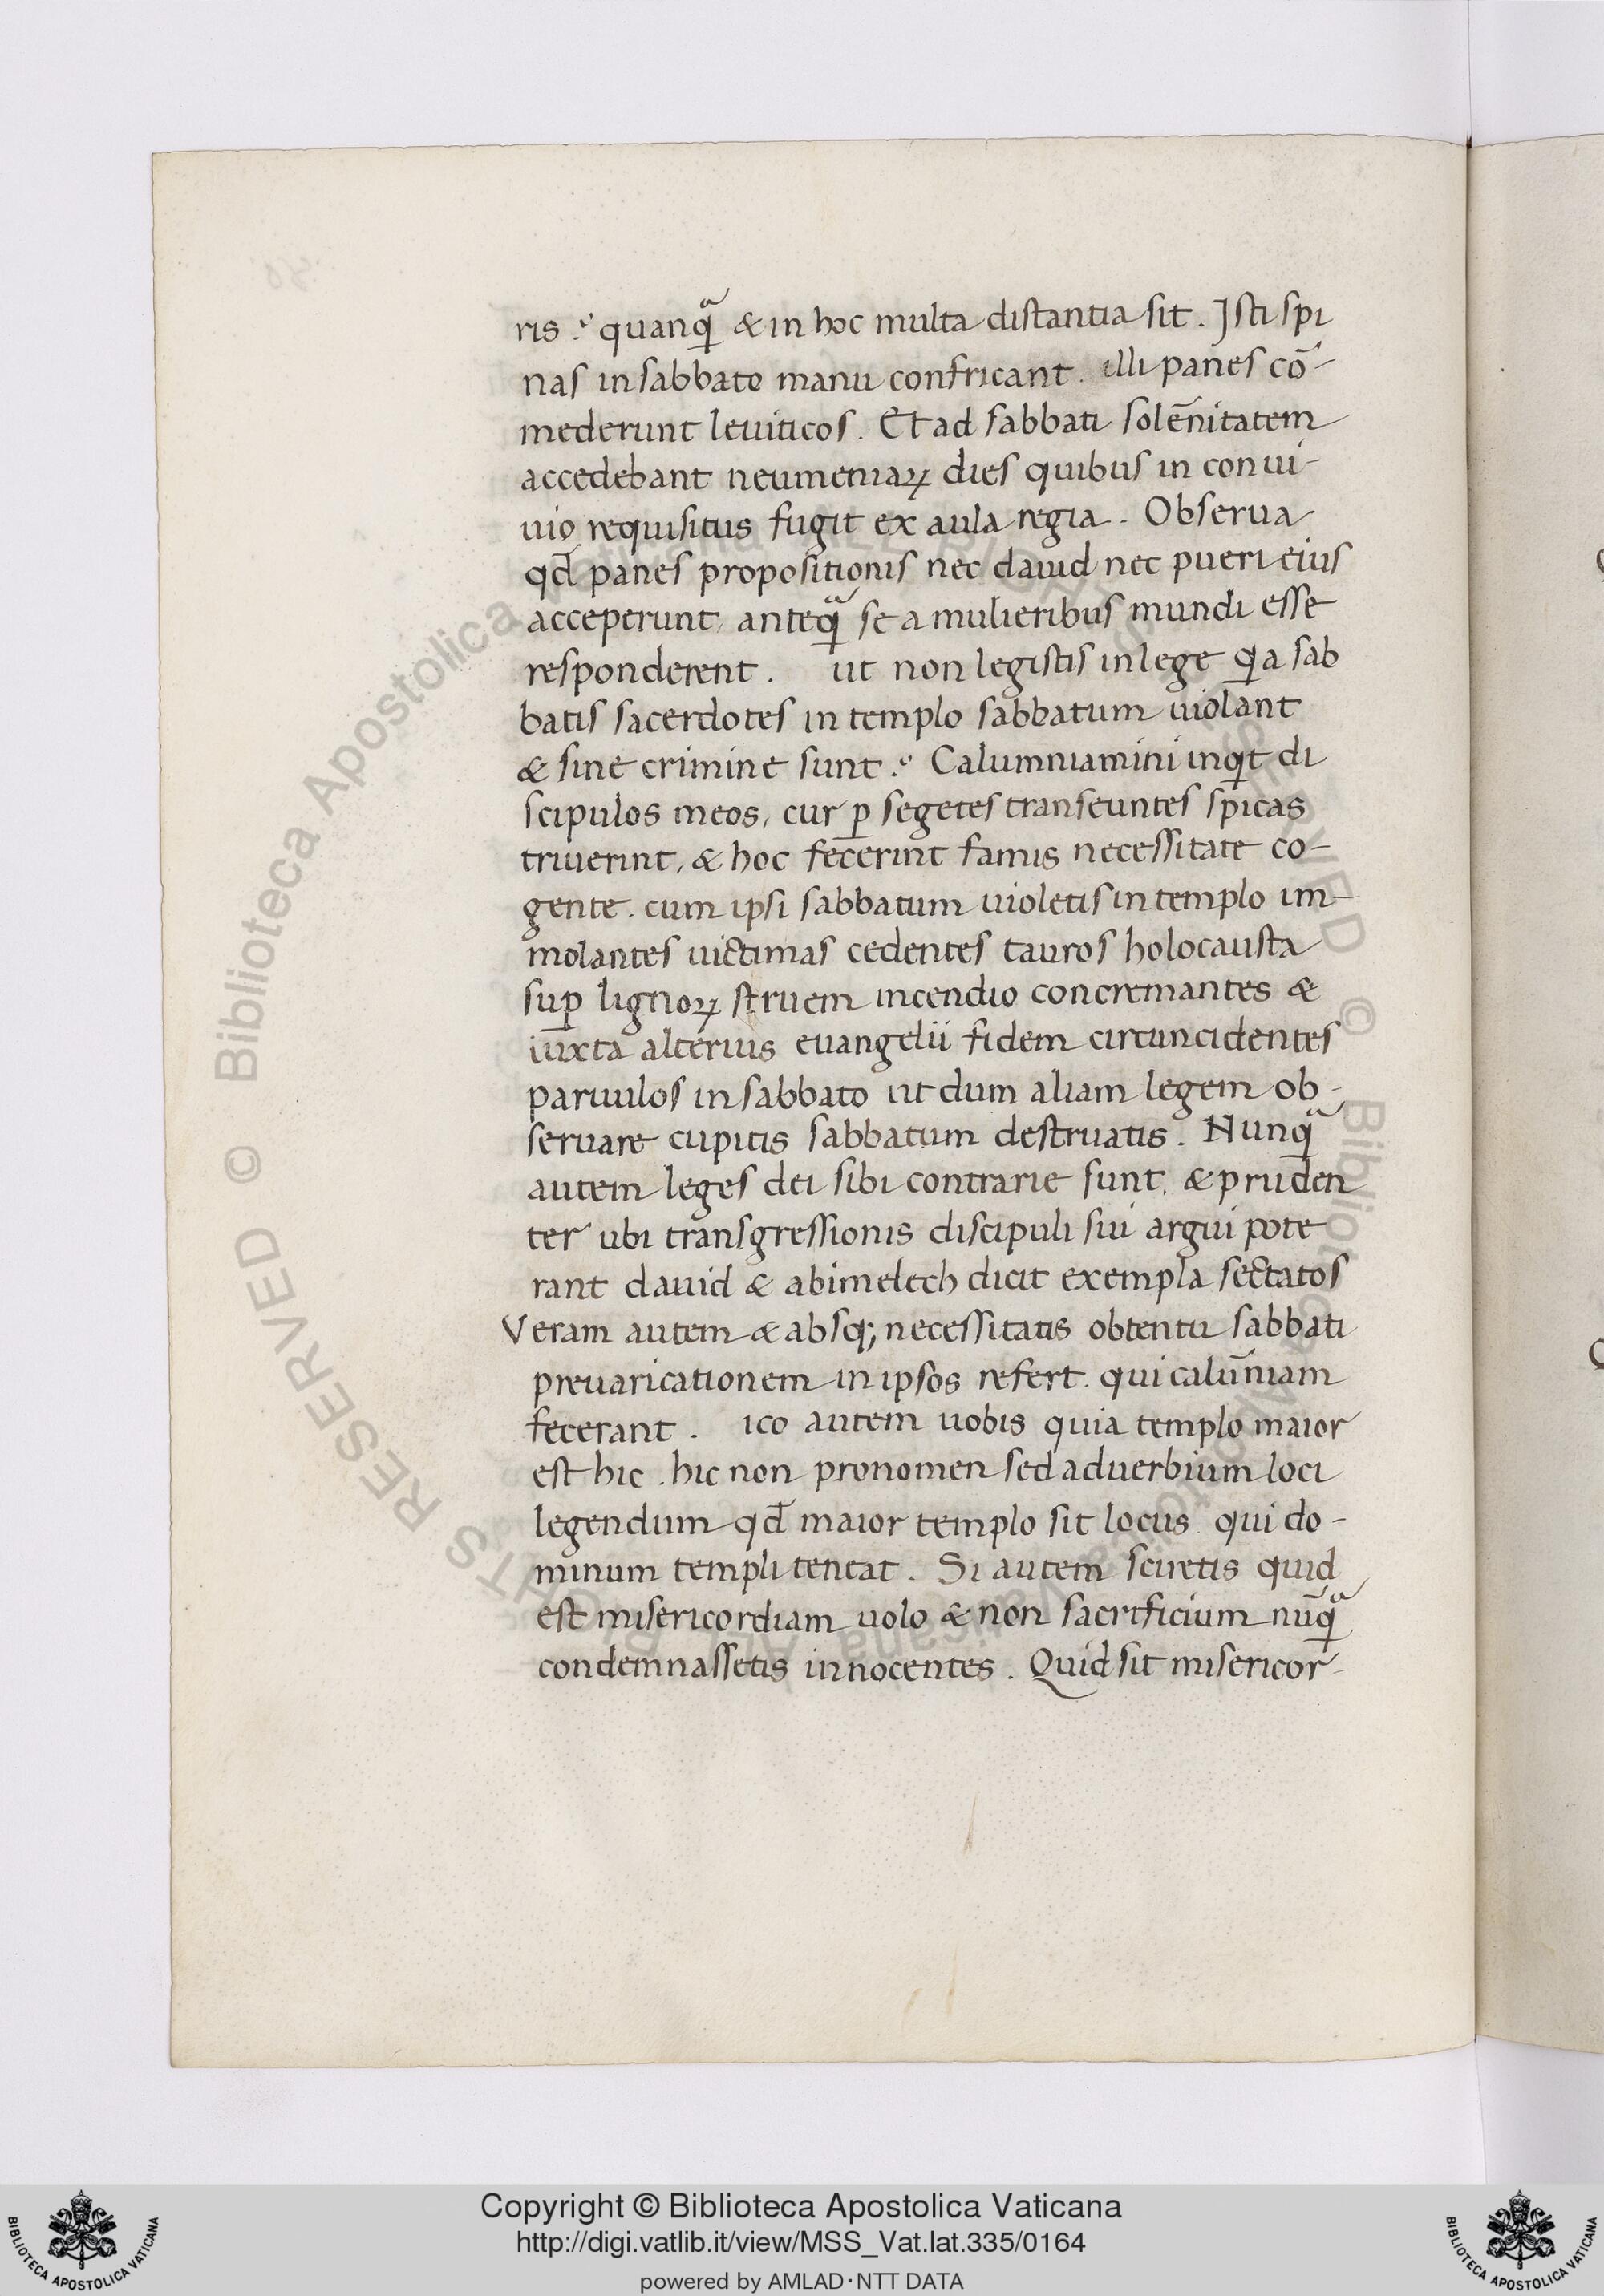 ris :́ quanq̄ᵃ & in hoc multa distantia sit . Isti spi
nas in sabbato manu confricant . illi panes cō-
mederunt leuiticos . Et ad sabbati solēnitatem
accedebant neumeniaꝝ dies quibus in conui-
uio requisitus fugit ex aula regia . Obserua
qđ panes propositionis nec dauid nec pueri eius
acceperunt, anteꝗᵃ se a mulieribus mundi esse
responderent . ut non legistis in lege ꝗa sab
batis sacerdotes in templo sabbatum uiolant
& sine crimine sunt .՞ Calumniamini inꝗt di
scipulos meos, cur ꝑ segetes transeuntes spicas
triuerint, & hoc fecerint famis necessitate co-
gente . cum ipsi sabbatum uioletis in templo im-
molantes uictimas cedentes tauros holocausta
suꝑ lignoꝝ struem incendio concremantes &
iuxta alterius euangelii fidem circuncidentes
paruulos in sabbato ut dum aliam legem ob-
seruare cupitis sabbatum destruatis . Nunꝗᵃ
autem leges dei sibi contrarie sunt . & pruden
ter ubi transgressionis discipuli sui argui pote
rant dauid & abimelech dicit exempla sectatos
Veram autem & absq; necessitatis obtentu sabbati
preuaricationem in ipsos refert . qui calūniam
fecerant . ico autem uobis quia templo maior
est hic . hic non pronomen sed aduerbium loci
legendum qđ maior templo sit locus qui do-
minum templi teneat . Si autem sciretis quid
est misericordiam uolo & non sacrificium nūꝗᵃ
condemnassetis innocentes . Quid sit misericor-
Copyright © Biblioteca Apostolica Vaticana
http://digi.vatlib.it/view/MSS_Vat.lat.335/0164
powered by AMLAD·NTT DATA
BIBLIOTECA APOSTOLICA VATICANA
BIBLIOTECA APOSTOLICA VATICANA